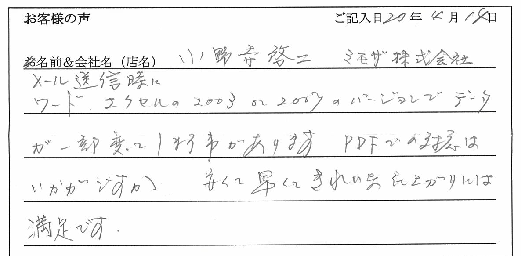 お客様の声 ご記入日20年4月18日
お名前&会社名(店名) 小野寺啓二 ミモザ株式会社
メール送信時に
ワード、エクセルの2003 or 2007のバージョンでデータ
が一部変わる事があります PDFでの対応は
いかがですか 安くて早くてきれいな仕上がりには
満足です.